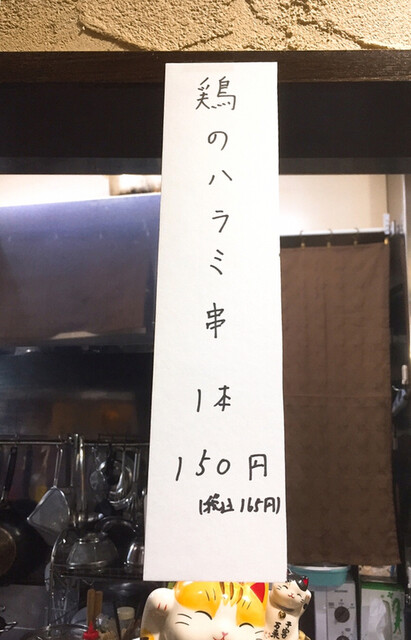 鶏のハラミ串
1本
150円
(税込165円)
千客万来